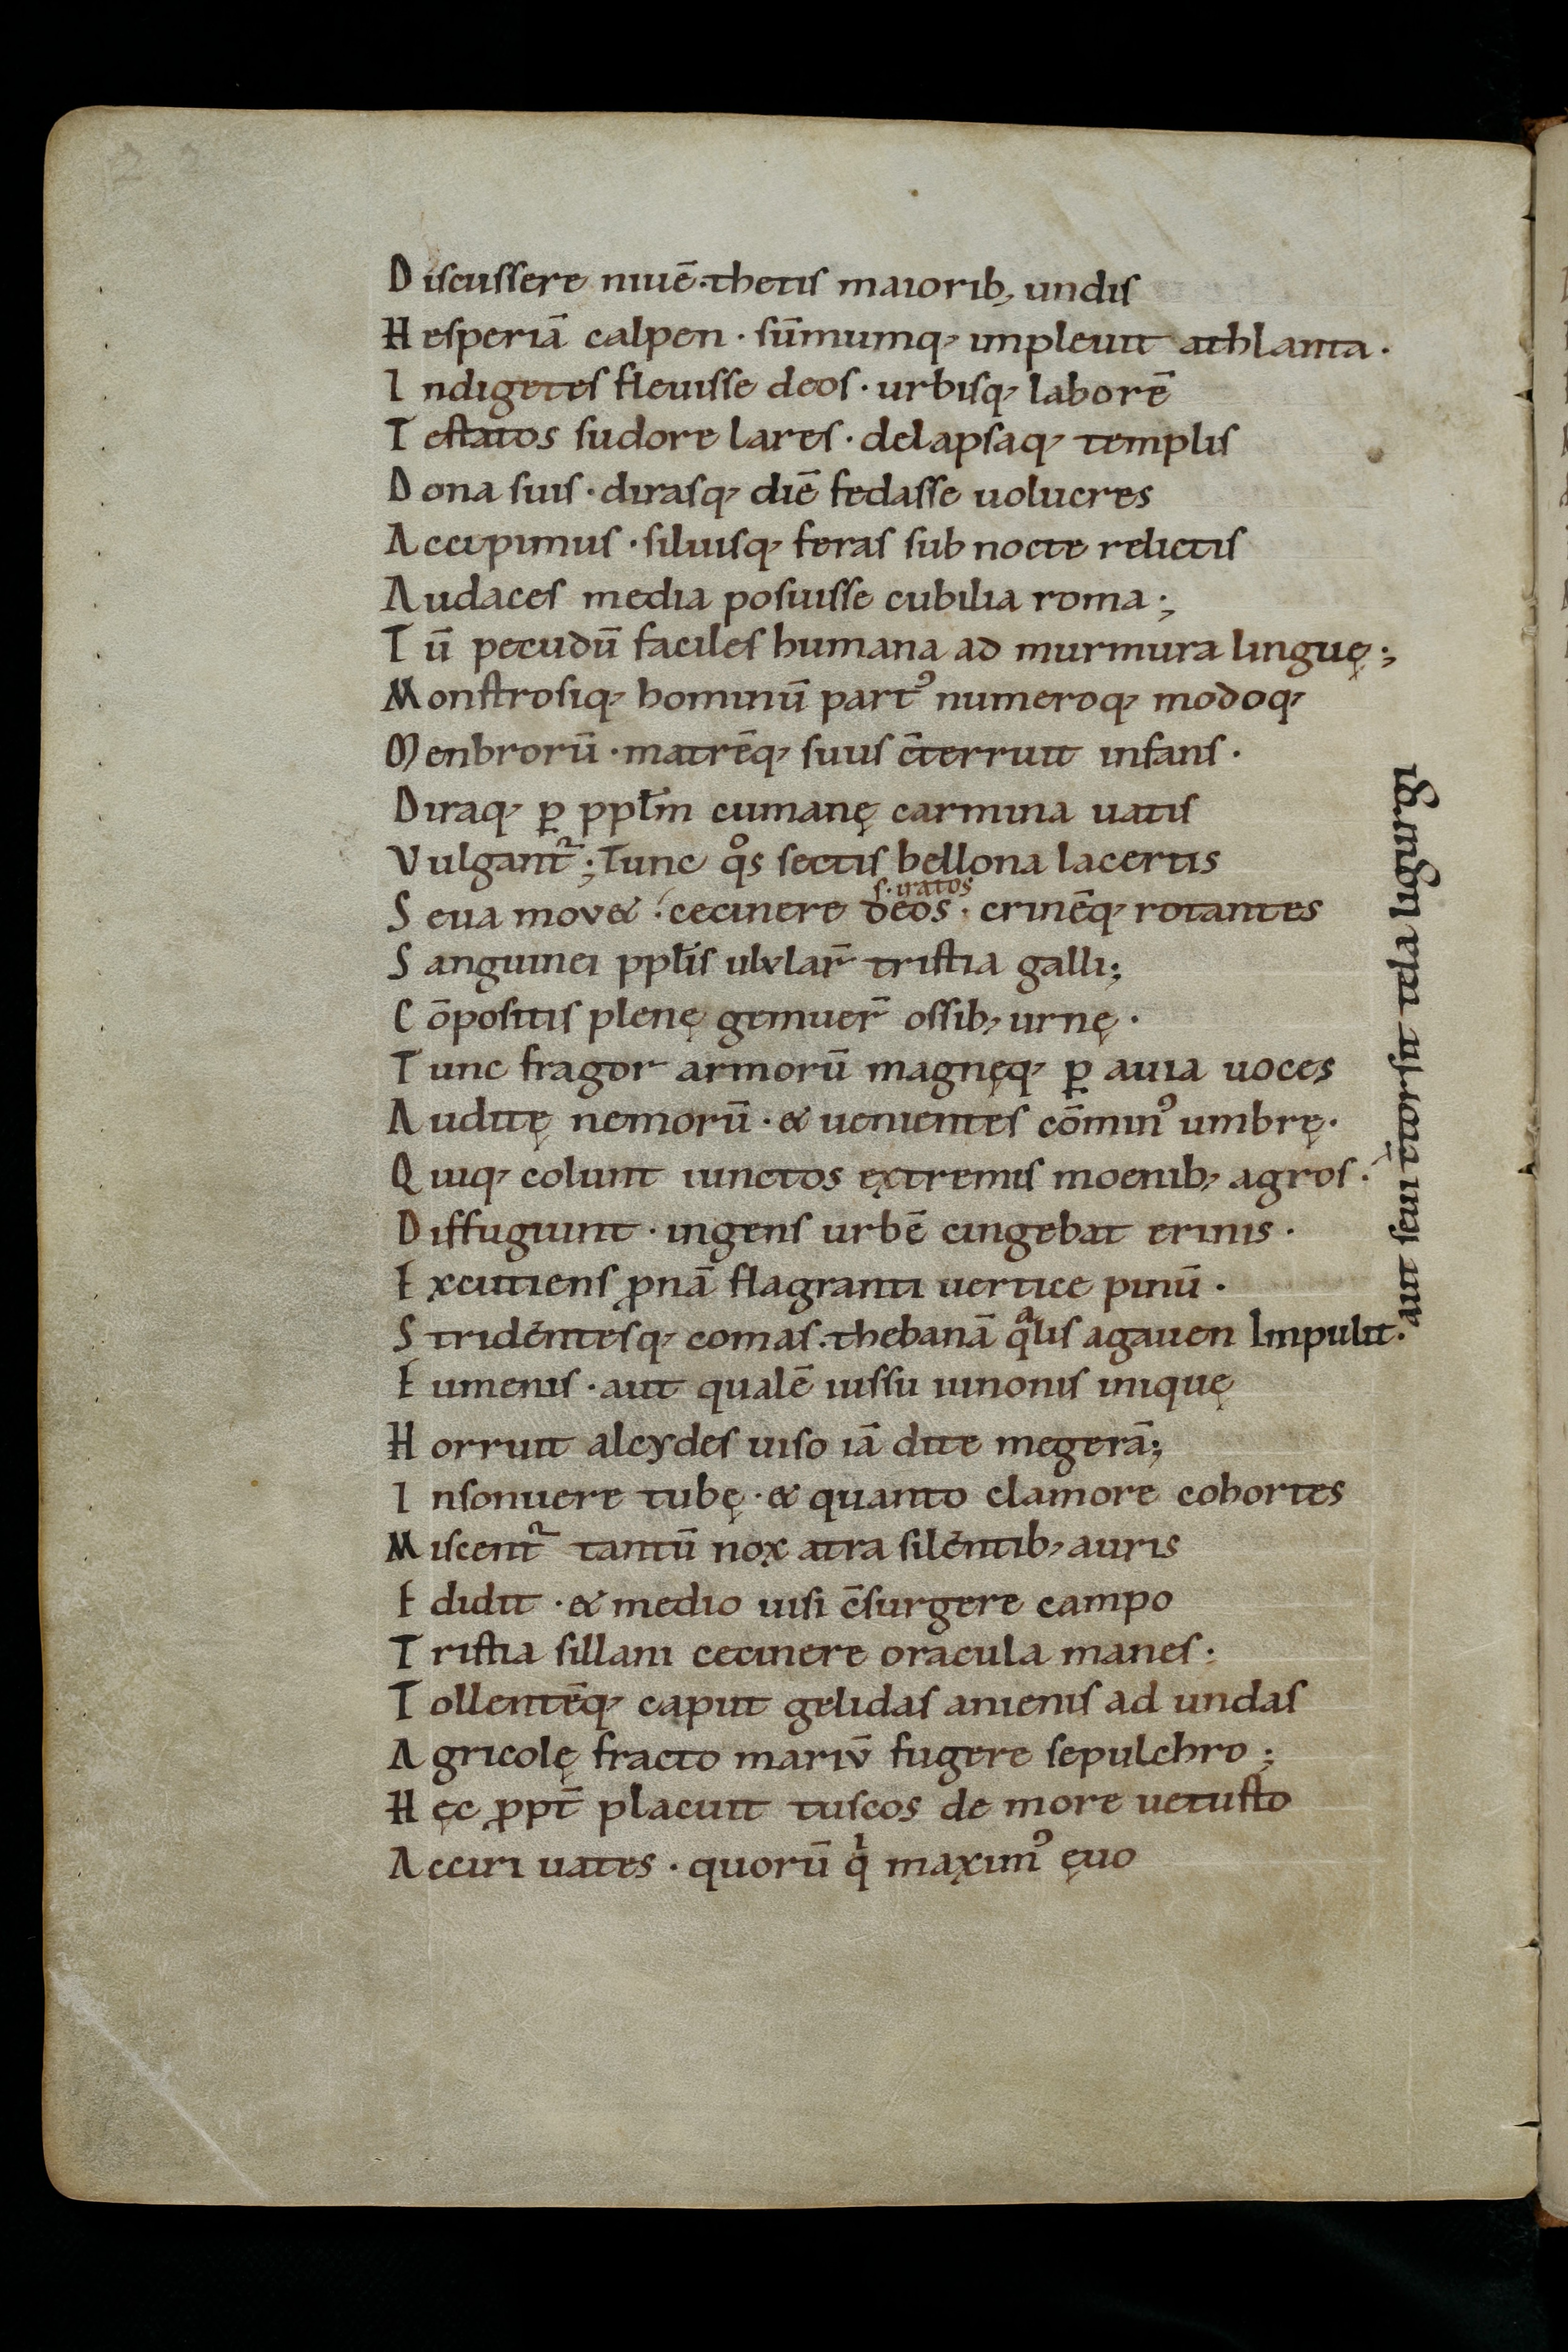 Discussere niuē· thetis maiorib; undis
Hesperiā calpen · sūmumq; impleuit athlanta ·
Indigetes fleuisse deos · urbisq; laborē
Testatos sudore lares · delapsaq; templis
Dona suis · dirasq; diē fedasse uolucres
Accipimus · siluisq; feras sub nocte relictis
Audaces media posuisse cubilia roma ·;
Tū pecudū faciles humana ad murmura linguę ·;
Monstrosiq; hominū part᾿ numeroq; modoq;
Menbrorū · matrēq; suus c̄terruit infans ·
Diraq; ꝑ ppl̄m cumanę carmina uatis
Vulgant᷑ ·; Tunc qͦs sectis bellona lacertis
s· iratos
Seua mov& · cecinere deos · crinēq; rotantes
Sanguinei ppl̄is ulvlar̄ tristia galli;
Cōpositis plenę gemuer̄ ossib; urnę ·
Tunc fragor armorū magnęq; ꝑ auia uoces
Auditę nemorū · & uenientes cōmin᾿ umbrę ·
Quiq; colunt iunctos extremis moenib; agros ·
Diffugiunt · ingens urbē cingebat erinis ·
Excutiens p̄nā flagranti uertice pinū ·
Stridéntesq; comas · thebanā qͣlis agauen Impulit ·
Eumenis · aut qualē iussu iunonis iniquę
Horruit alcydes uiso iā dite megerā;
Insonuere tubę · & quanto clamore cohortes
Miscent᷑ tantū nox atra siléntib; auris
Edidit · & medio uisi c̄surgere campo
Tristia sillani cecinere oracula manes ·
Tollentēq; caput gelidas anienis ad undas
Agricolę fracto mariv̄ fugere sepulchro ·;
Hęc p̄pt̄ placuit tuscos de more uetusto
Acciri uates · quorū qͥ maxim᾿ ęuo
aut seui c̄torsit tela ligurgi